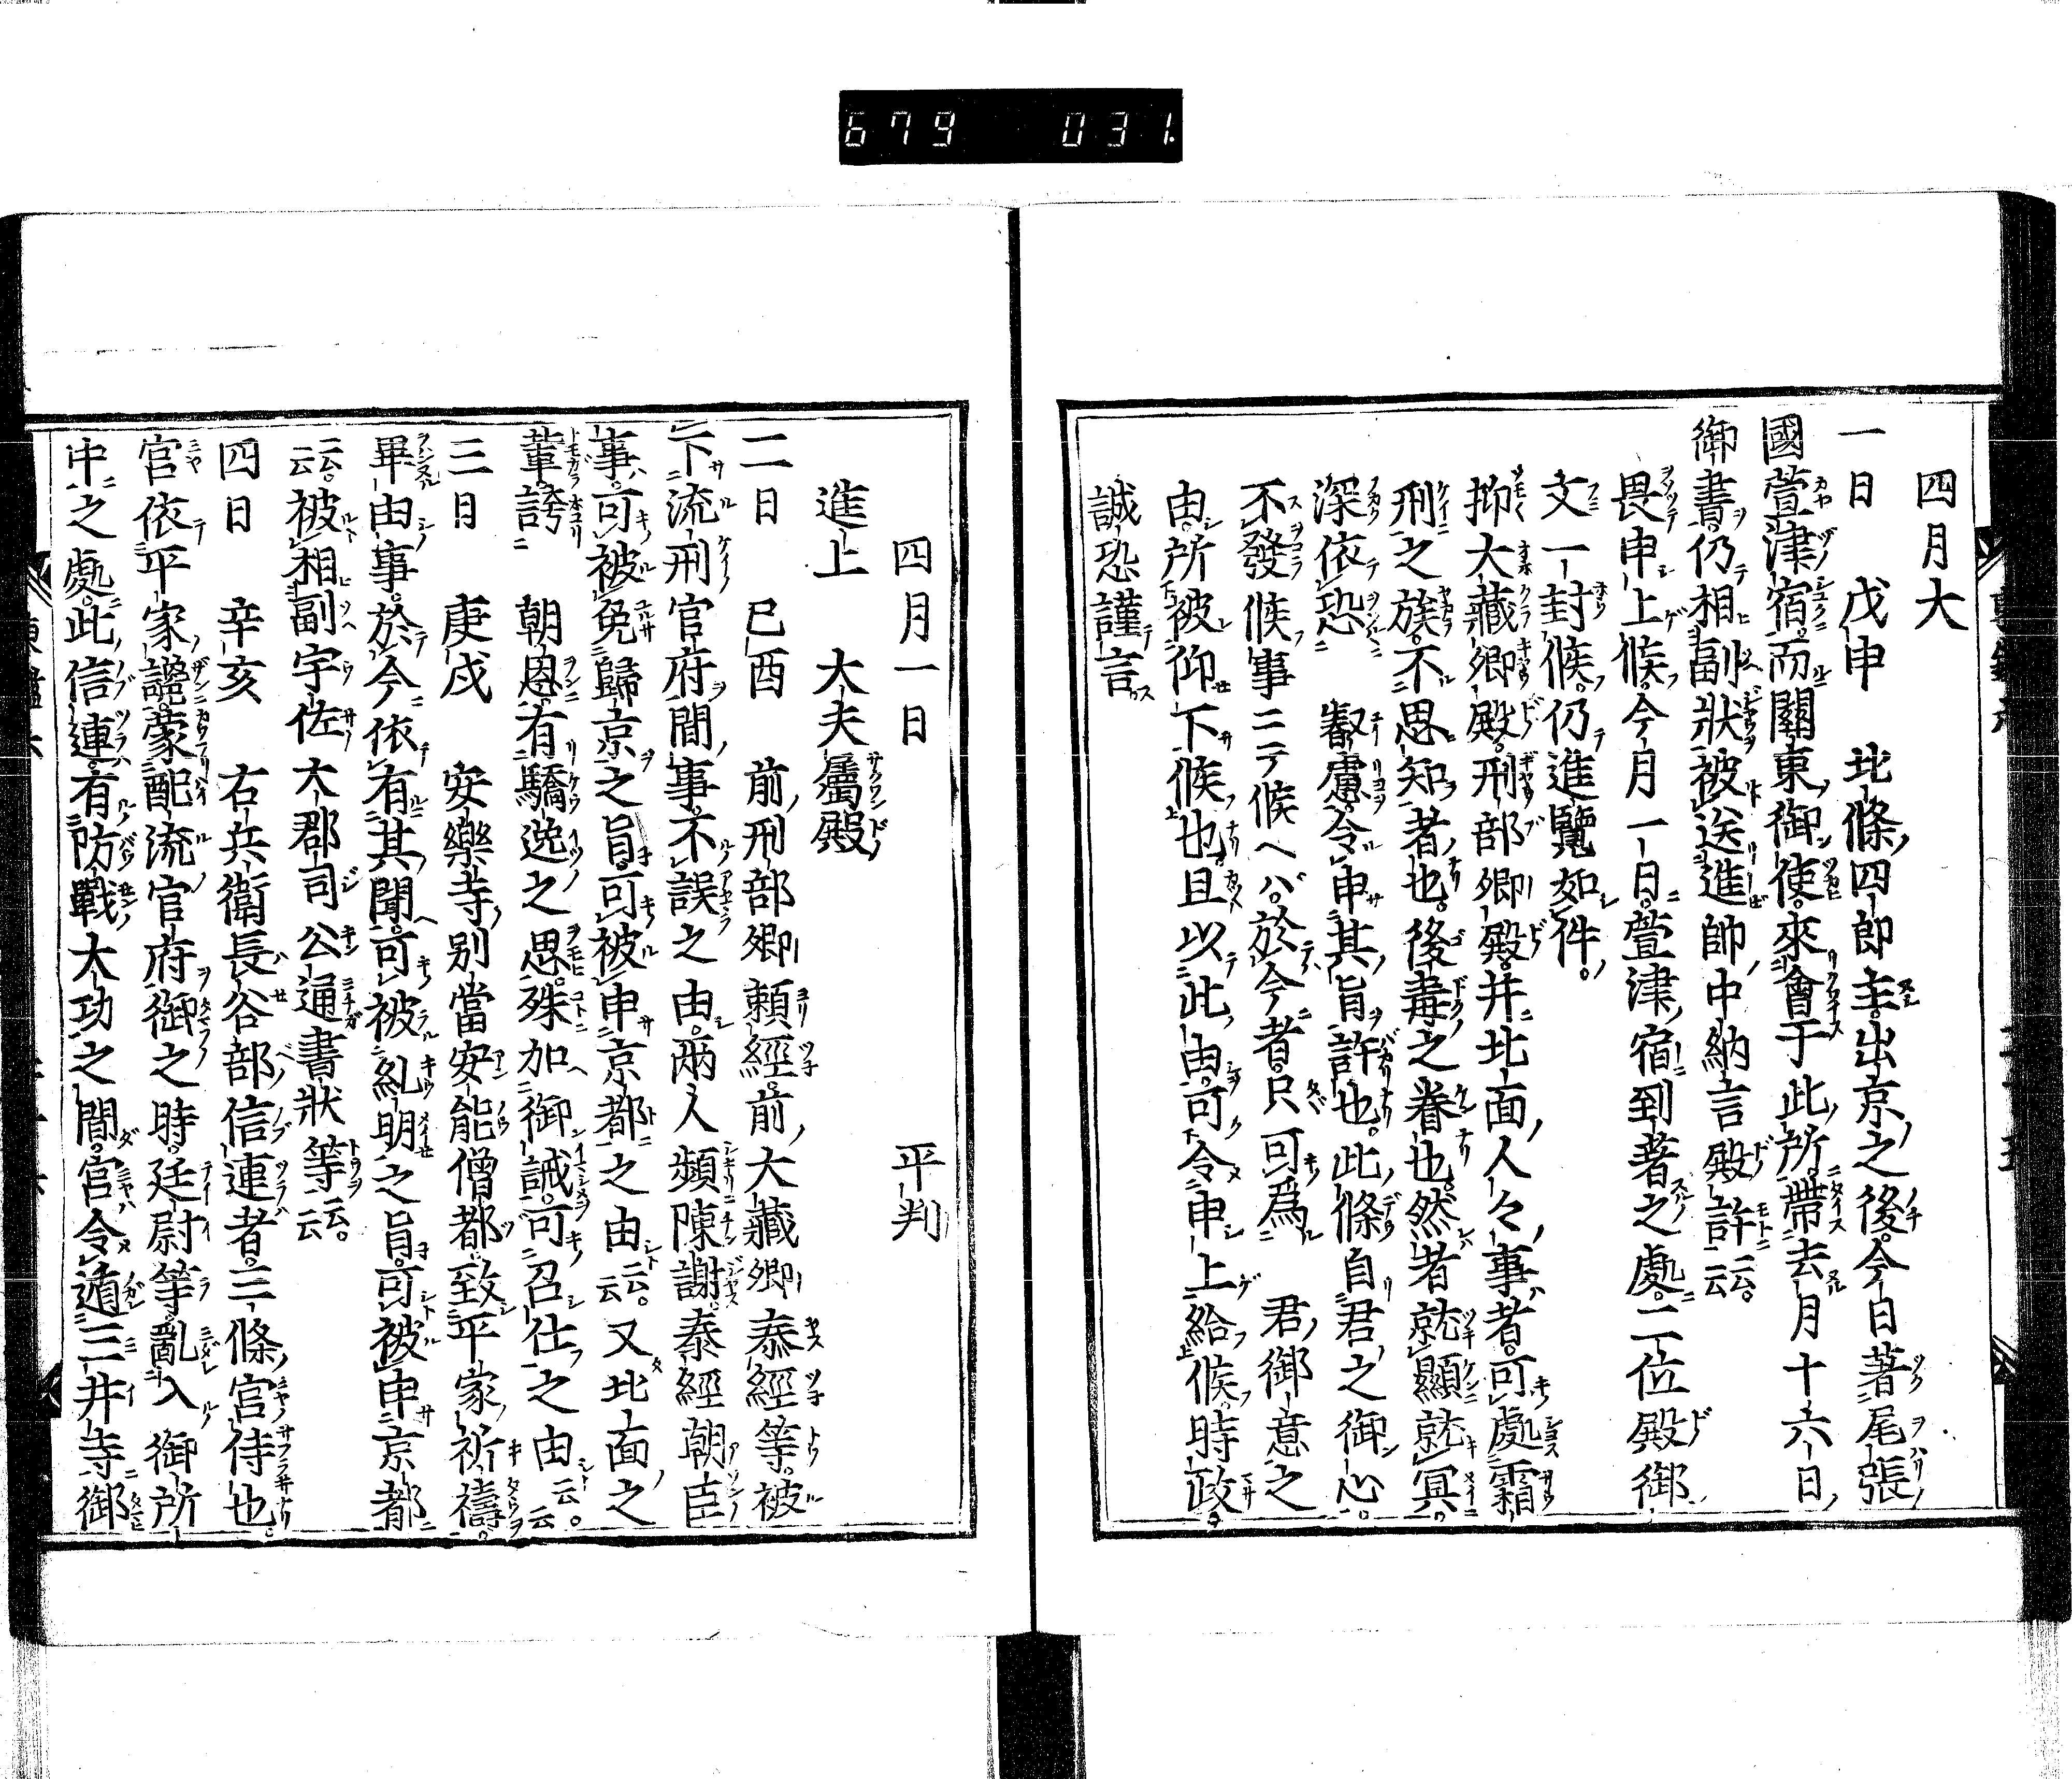 679 031
四月大
一日 戊申 北條四郎主出京之後今日著尾張
國萱津宿而關東御使來會于此所帶去月十六日
御書仍相副狀被送進帥中納言殿許云云
畏申上候今月一日萱津宿到著之處二位殿御
文一封候仍進覽如件
抑大藏卿殿刑部卿殿并北面人々事者可處霜
刑之族不思知者也後毒之眷也然者就顯就冥
深依恐 叡慮令申其旨許也此條自君之御心
不發候事ニテ候ヘバ於今者只可爲 君御意之
由所被仰下候也且以此由可令申上給候時政
誠恐謹言
四月一日 平判
進上 大夫屬殿
二日 己酉 前刑部卿頼經前大藏卿泰經等被
下流刑官府間事不誤之由兩人頻陳謝泰經朝臣
事可被免歸京之旨可被申京都之由云云又北面之
輩誇 朝恩有驕逸之思殊加御誡可召仕之由云云
三日 庚戌 安樂寺別當安能僧都致平家祈禱
畢由事於今依有其聞可被糺明之旨可被申京都
云云被相副宇佐大郡司公通書狀等云云
四日 辛亥 右兵衛長谷部信連者三條宮侍也
官依平家讒蒙配流官府御之時廷尉等亂入御所
中之處此信連有防戰大功之間宮令遁三井寺御